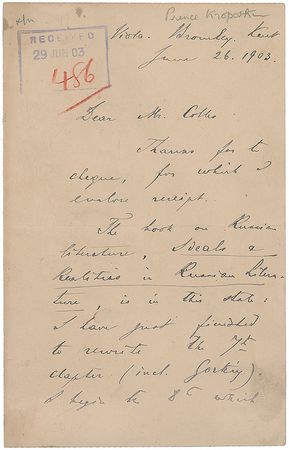 Prince Kropotkin
Viola. Bromley. Kent
RECEIVED
29 JUN 03
486
June 26. 1903.
Dear Mr. Colles
Thanks for te
cheque, for which I
enclose receipt.
The book on Russian
literature, Ideals &
Realities in Russian Litera-
ture, is in this state:
I have just finished
to rewrite the 7th
chapter (incl. Gorkiy).
I begin te 8th which